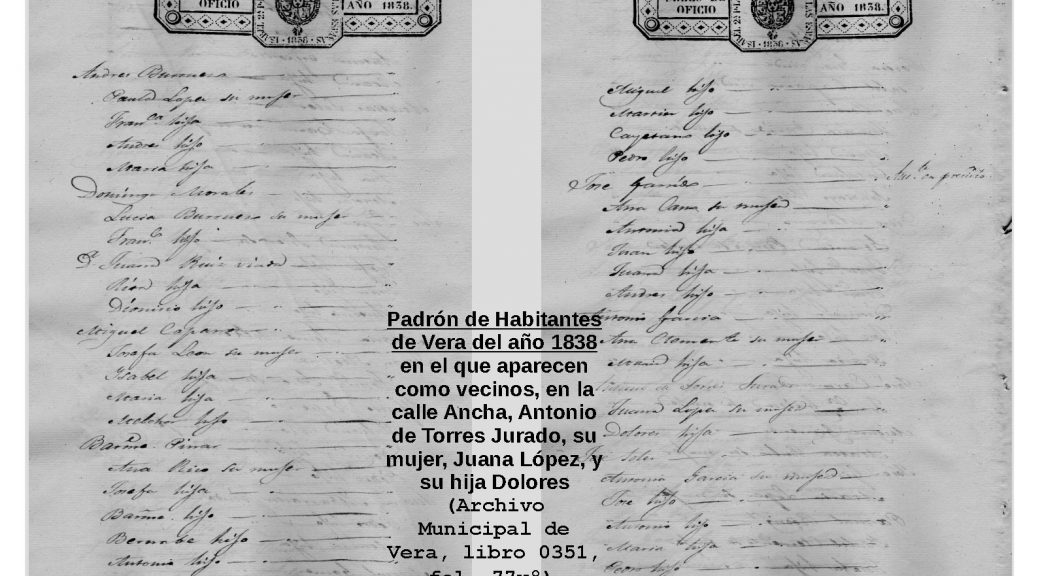 OFICIO
AÑO 1838.
Andres Burruezo
Paula Lopez su muger
Fran.ca hija
Andres hijo
Maria hija
Domingo Morales
Lucia Burruezo su muger
Fran.co hijo
D.a Juana Ruiz viuda
hija
Dionisio hijo
Miguel Caparros
Josefa Leon su muger
Ysabel hija
Maria hija
Melchor hijo
Barme. Pinar
Ana Rico su muger
Josefa hija
Barme. hijo
Bernarde hijo
Antonio hijo
OFICIO
AÑO 1838.
Miguel hijo
Martin hijo
Cayetano hijo
Pedro hijo
Jose Garrido
Ana Cano su muger
Antonia hija
Juan hijo
Juana hija
Andres hijo
Antonio Garcia
Ana Clemente su muger
hija
Antonio de Torres Jurado
Juana Lopez su muger
Dolores hija
Soler
Antonia Garcia su muger
Jose hijo
Antonio hijo
Maria hija
Pedro hijo
Padrón de Habitantes
de Vera del año 1838
en el que aparecen
como vecinos, en la
calle Ancha, Antonio
de Torres Jurado, su
mujer, Juana López, y
su hija Dolores
(Archivo
Municipal de
Vera, libro 0351,
fol. 77vº)